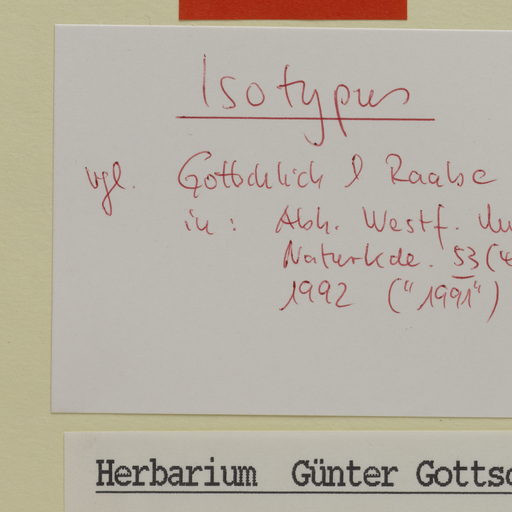 Isotypus
vgl. Gottschlich & Raabe
in: Abh. Westf. Mu
Naturkde. 53 (4
1992 ("1991")
Herbarium Günter Gottsc